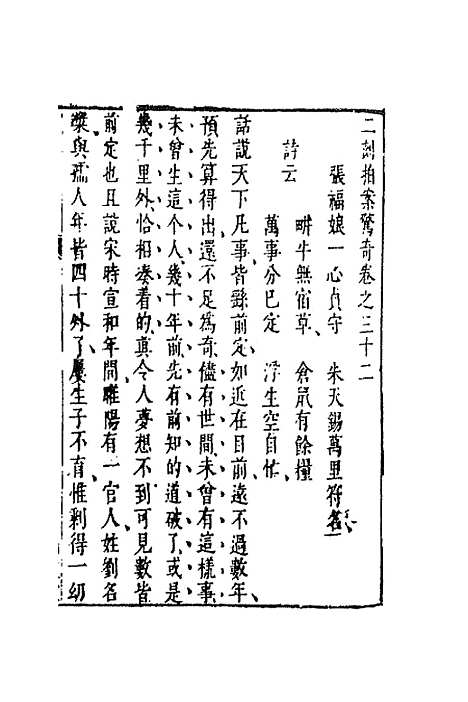 二刻拍案驚奇卷之三十二
張福娘一心貞守　朱天錫萬里符名
詩云
耕牛無宿草　倉鼠有餘糧
萬事分已定　浮生空自忙
話說天下凡事皆繇前定如近在目前遠不過數年、
預先算得出還不足為奇儘有世間未曾有這樣事
未曾生這個人幾十年前先有前知的道破了或是
幾千里外恰相湊着的真令人夢想不到可見數皆
前定也且說宋時宣和年間睢陽有一官人姓劉名
槳與孺人年皆四十外了屢生子不育惟剩得一幼